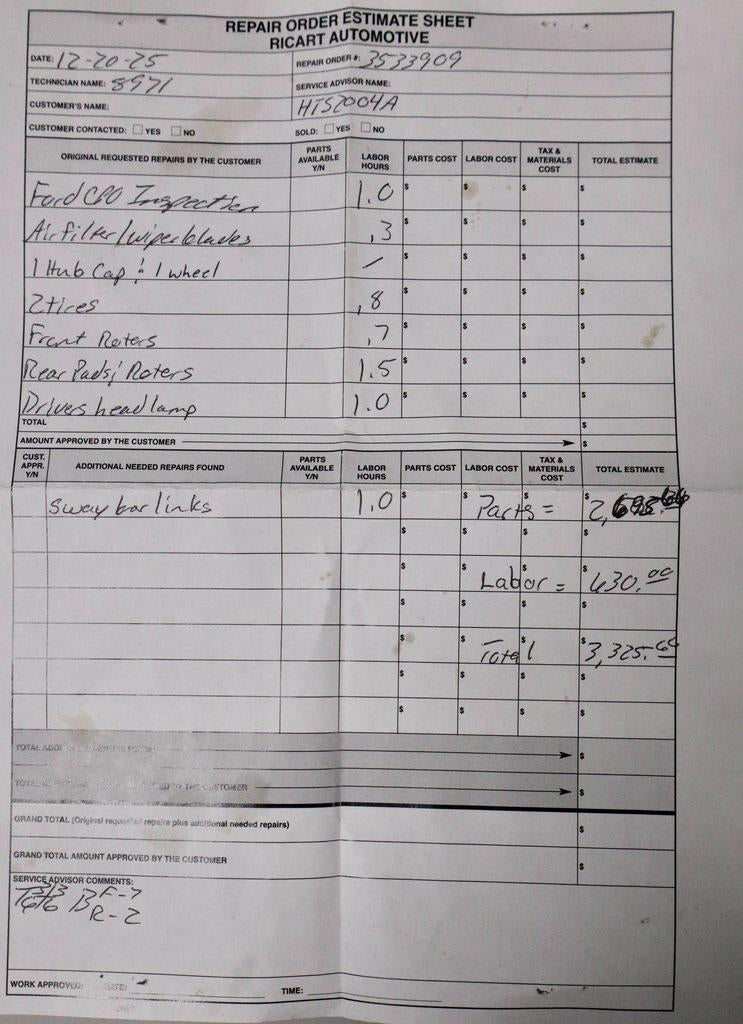 REPAIR ORDER ESTIMATE SHEET
RICART AUTOMOTIVE
DATE: 12-20-25 REPAIR ORDER #: 3533909
TECHNICIAN NAME: 8971 SERVICE ADVISOR NAME:
CUSTOMER'S NAME: HTS2004A
CUSTOMER CONTACTED: YES NO SOLD: YES NO
ORIGINAL REQUESTED REPAIRS BY THE CUSTOMER PARTS AVAILABLE Y/N LABOR HOURS PARTS COST LABOR COST TAX & MATERIALS COST TOTAL ESTIMATE
Ford CPO Inspection 1.0 $ $ $ $
Air filter/wiper blades .3 $ $ $ $
1 Hub Cap ; 1 wheel / $ $ $ $
2 tires .8 $ $ $ $
Front Roters .7 $ $ $ $
Rear Pads; Roters 1.5 $ $ $ $
Drivers head lamp 1.0 $ $ $ $
TOTAL $
AMOUNT APPROVED BY THE CUSTOMER $
CUST. APPR. Y/N ADDITIONAL NEEDED REPAIRS FOUND PARTS AVAILABLE Y/N LABOR HOURS PARTS COST LABOR COST TAX & MATERIALS COST TOTAL ESTIMATE
Sway bar links 1.0 $ Parts = $
$ $ $ $
$ $ Labor = $ 630.00
$ $ $ $
$ $ Total $ 3,325.66
$ $ $ $
$ $ $ $
$
$
GRAND TOTAL (Original requested repairs plus additional needed repairs) $
GRAND TOTAL AMOUNT APPROVED BY THE CUSTOMER $
SERVICE ADVISOR COMMENTS:
B F-7
R-2
WORK APPROVED: DATE: TIME: